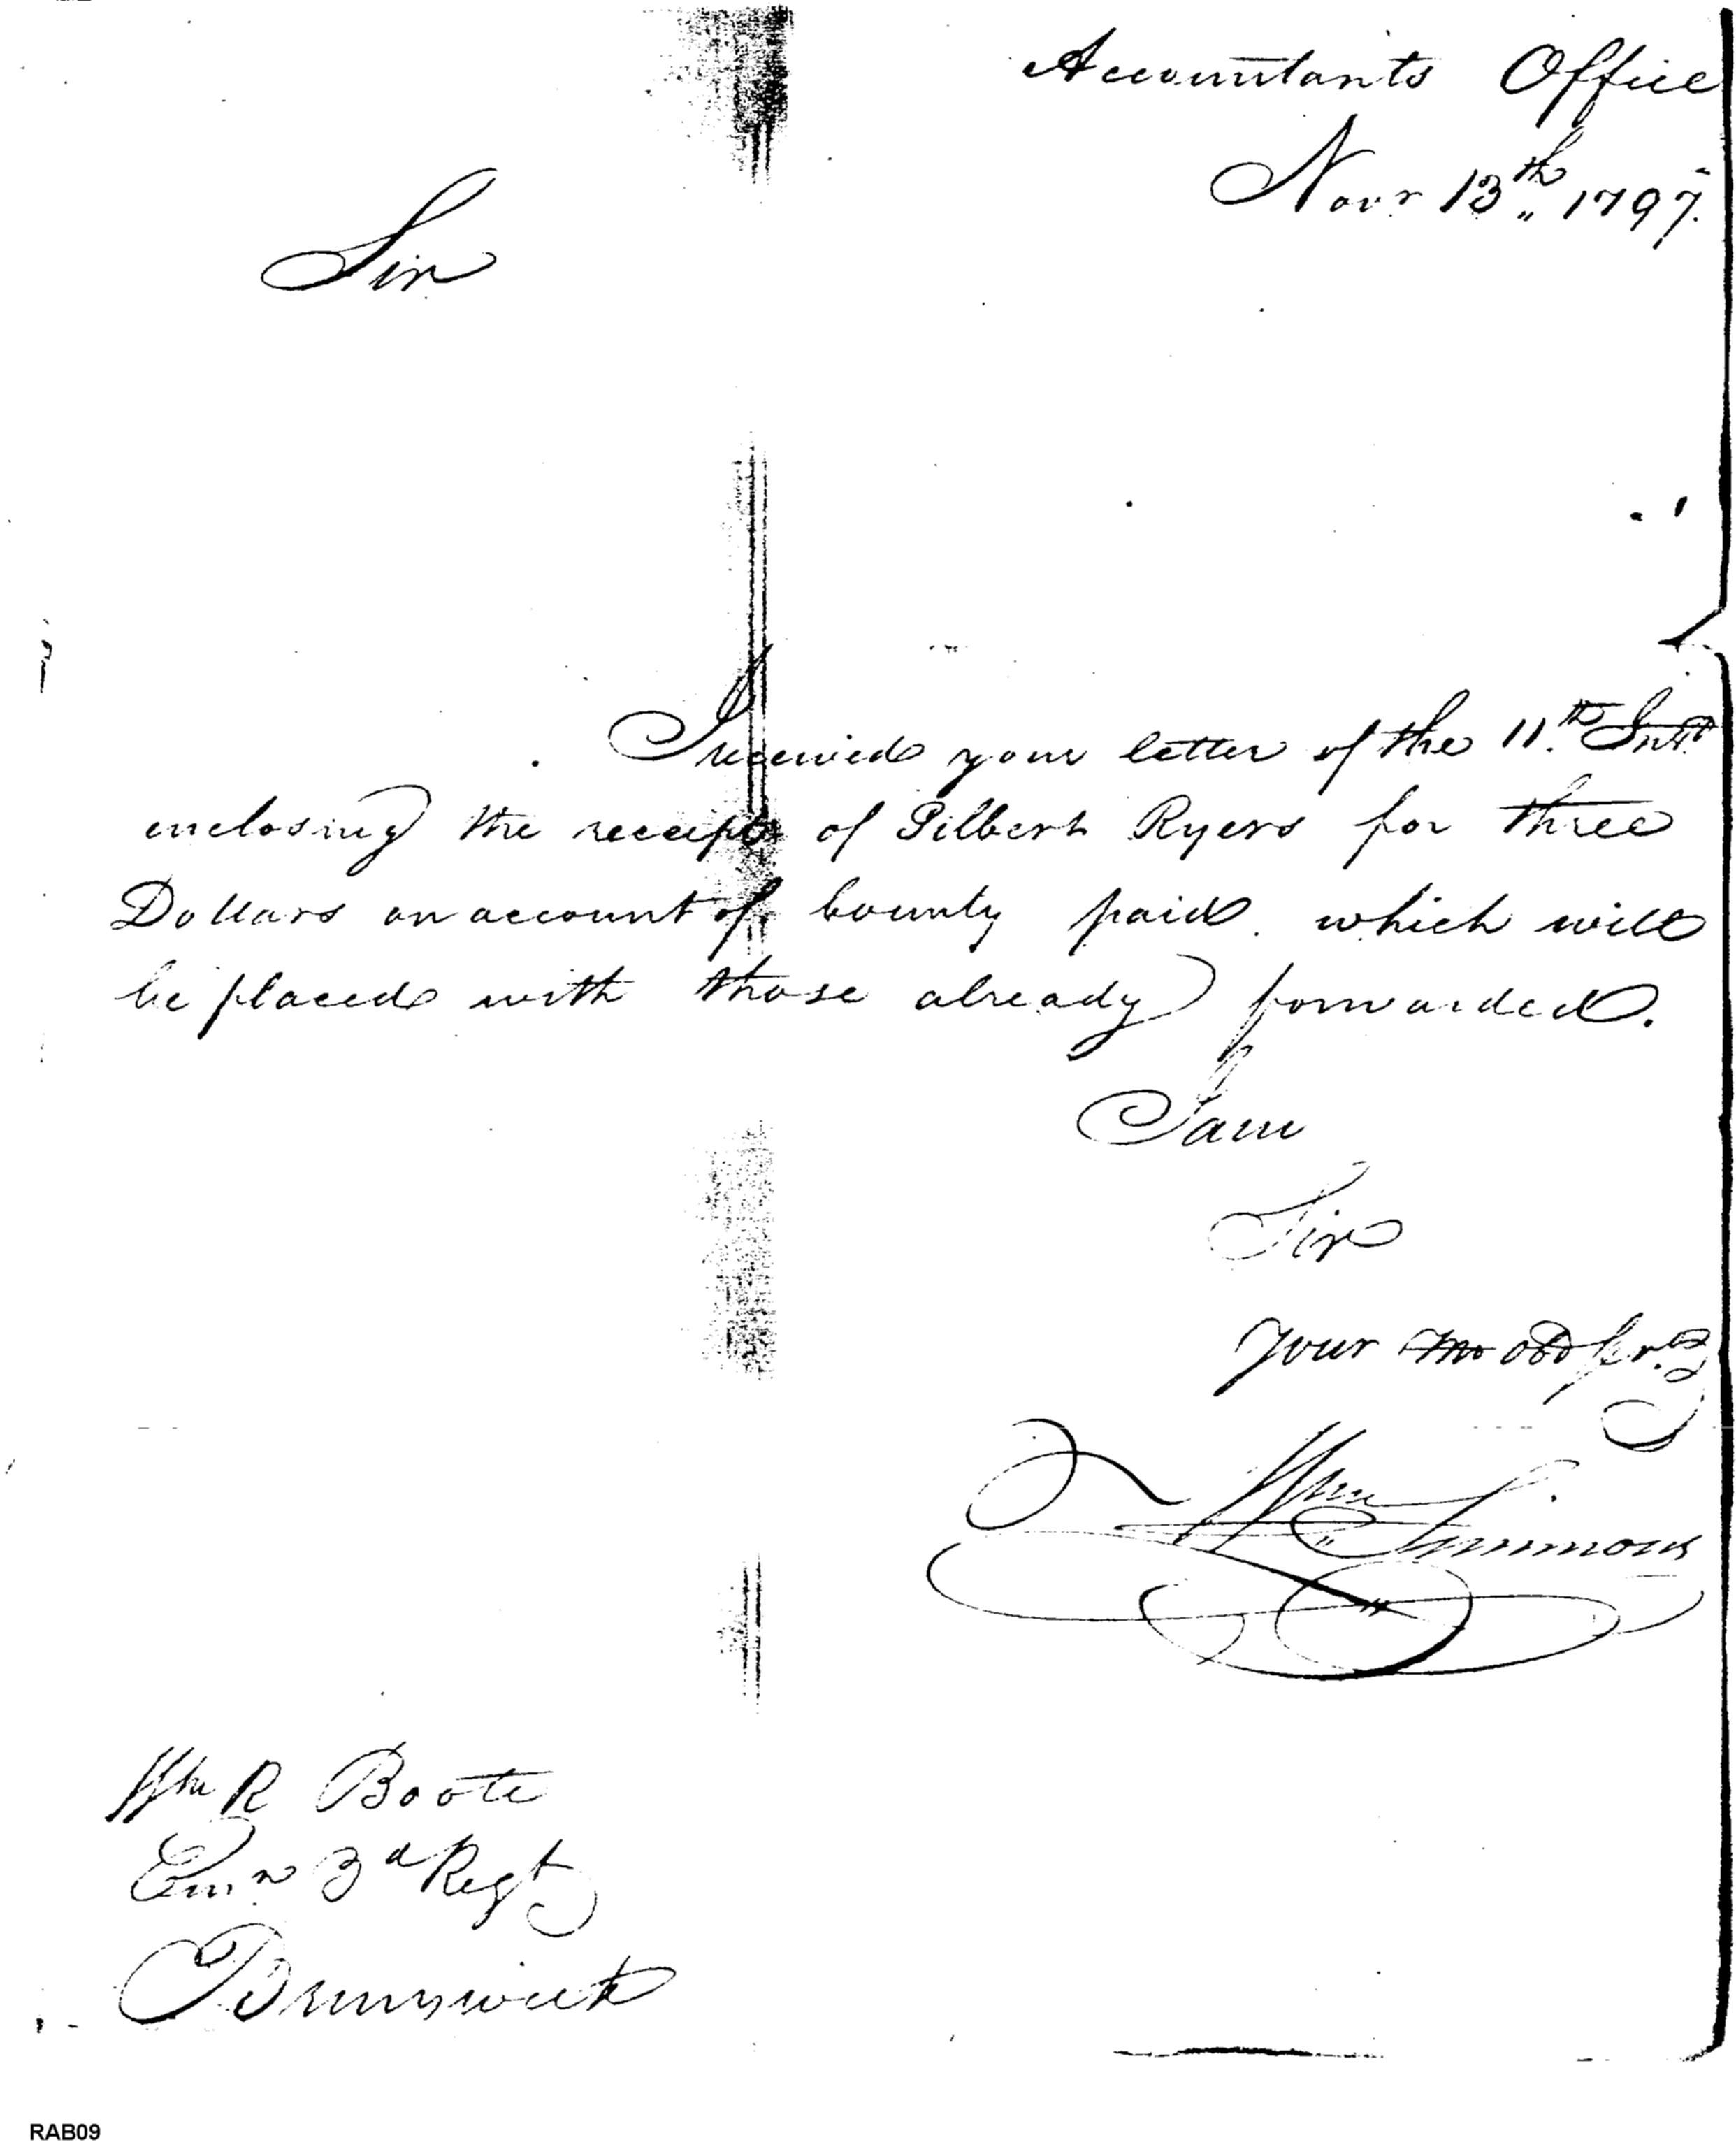 Accountants Office
Novr 13th 1797.
Sir
I received your letter of the 11th Inst
enclosing the receipt of Gilbert Ryers for three
Dollars on account of bounty paid. which will
be placed with those already forwarded.
I am
Sir
Your Mo obd
Wm Simmons
Wm R Boote
3d Regt
Brunswick
RAB09